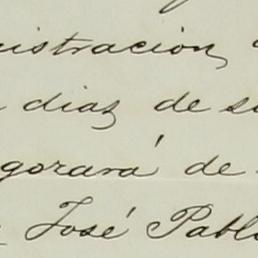 istracion,
diaz de s
gorará de
José Pabl